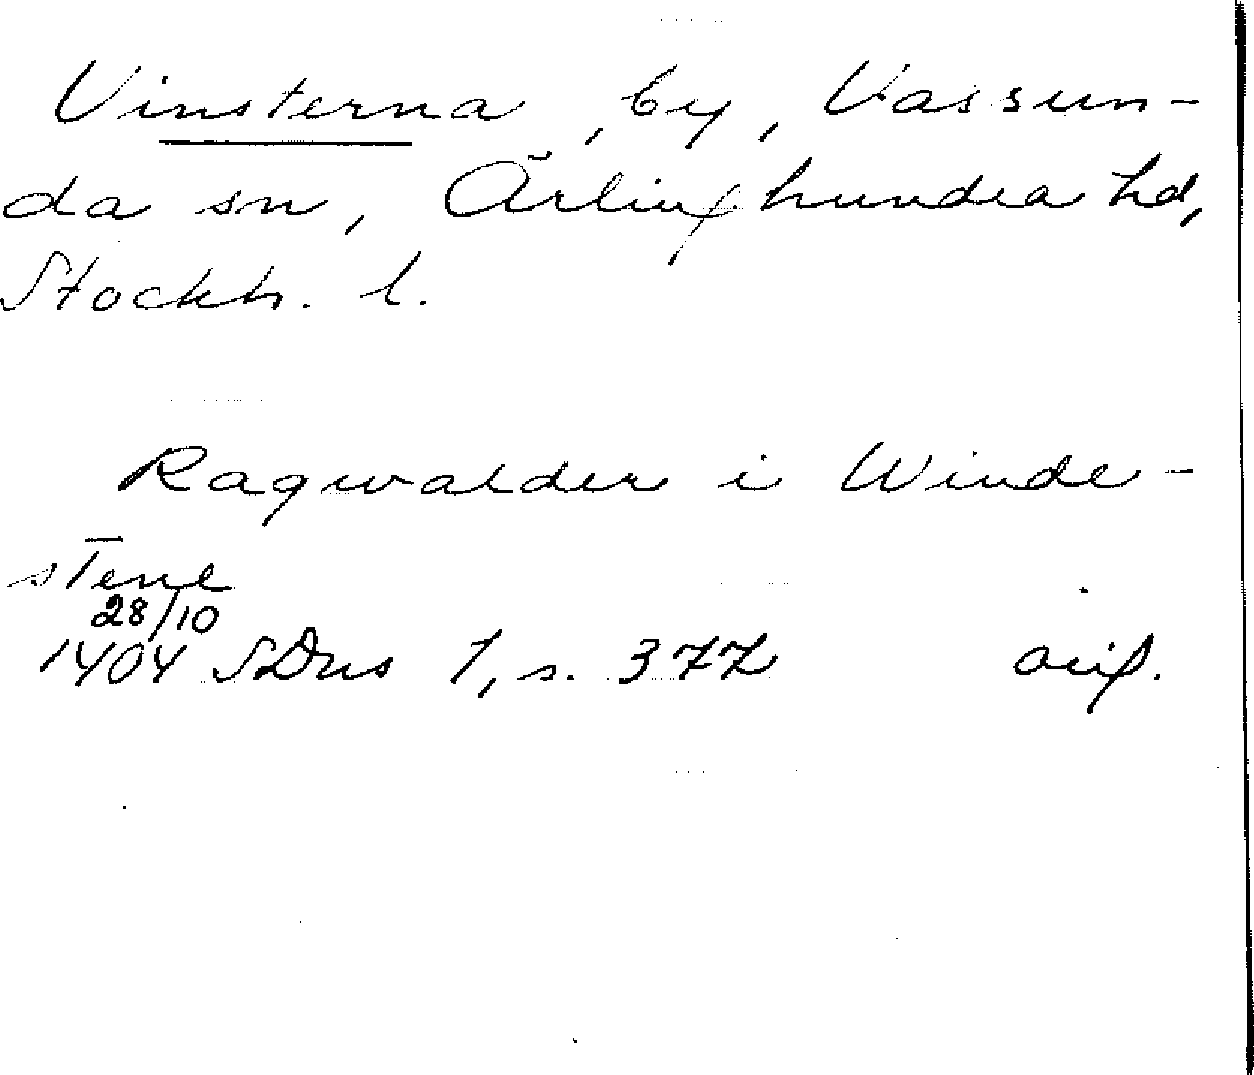 Vinsterna, by, Vassun-
da sn, Ärlinghundra hd,
Stockh. l.
Ragwalder i Winde-
stene
28/10
1404 SDns 1, s. 377 orig.